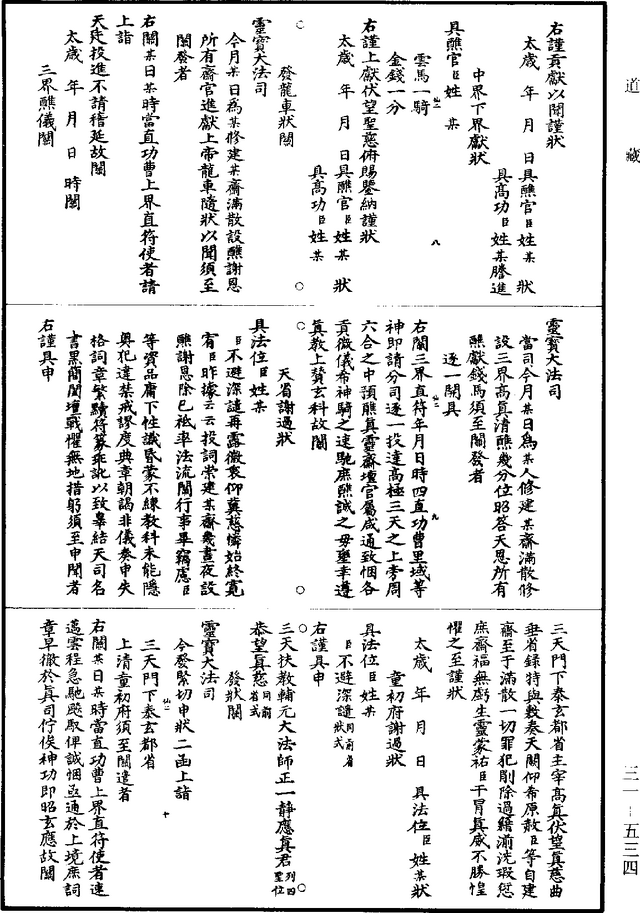 道藏
右謹貢獻以聞謹狀
太歲 年 月 日具醮官臣姓 某 狀
具高功臣姓 某 謄進
中界下界獻狀
具醮官臣姓 某
雲馬一騎
金錢一分
右謹上獻伏望聖慈俯賜鑒納謹狀
太歲 年 月 日具醮官臣姓 某 狀
具高功臣姓 某
發龍車狀關
靈寶大法司
今月某日為某修建某齋滿散設醮謝恩
所有齋官進獻上帝龍車隨狀以聞須至
關發者
右關某日某時當直功曹上界直符使者請
上詣
天廷投進不請稽延故關
太歲 年 月 日 時關
三界醮儀關
靈寶大法司
當司今月某日為某人修建某齋滿散修
設三界高真清醮幾分位昭答天恩所有
醮獻錢馬須至關發者
逐一開具
右關三界直符年月日時四直功曹里域等
神即請分司逐一投達高極三天之上旁周
六合之中預醮真靈齋壇官屬咸通致悃各
貢微儀希神騎之速馳庶醮誠之毋壅幸遵
真教上贊玄科故關
天省謝過狀
具法位臣姓某
臣不避深譴再露微衷仰冀慈憐始終寬
宥臣昨據云云投詞崇建某齋幾晝夜設
醮謝恩除已祗率法流關行事畢竊慮臣
等資品庸下性識昏蒙不練教科未能隱
奧犯違禁戒謬度典章朝謁非儀奏申失
格詞章繁黷符篆乖訛以致辠結天司名
書黑簡關壇戰懼無地措躬須至申聞者
右謹具申
三天門下泰玄都省主宰高真伏望真慈曲
垂省錄特與敷奏天闕仰希原赦臣等自建
齋至于滿散一切罪犯削除過籍湔洗瑕愆
庶齋福無虧生靈蒙祐臣干冒真威不勝惶
懼之至謹狀
太歲 年 月 日 具法位臣 姓某狀
童初府謝過狀
具法位臣姓某
臣不避深譴同前省狀式
右謹具申
三天扶教輔元大法師正一靜應真君列四聖位
恭望真慈同前省式
發狀關
靈寶大法司
今發緊切申狀二函上詣
三天門下泰玄都省
上清童初府須至關遣者
右關某日某時當直功曹上界直符使者速
邁雲程急馳飇馭俾誠悃亟通於上境庶詞
章早徹於真司佇俟神功即昭玄應故關
三一－五三四